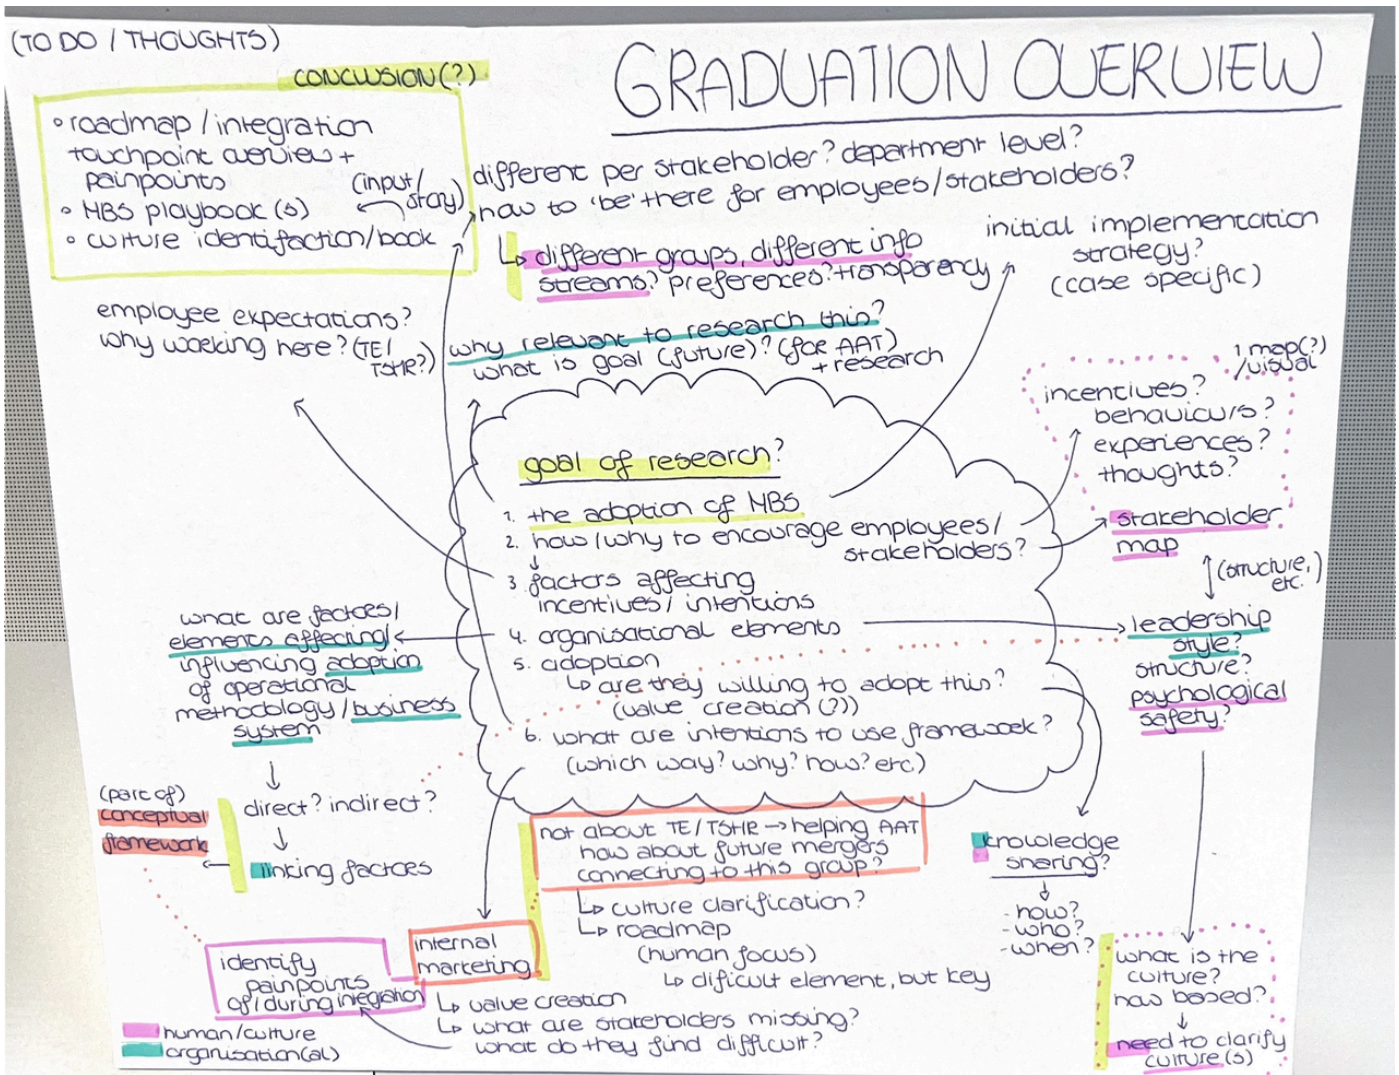 (TO DO / THOUGHTS)
GRADUATION OVERVIEW
CONCLUSION(?)
• roadmap / integration
touchpoint overview +
painpoints
• MBS playbook (s)
• culture identifaction/book
(input/
story)
different per stakeholder? department level?
how to 'be' there for employees/stakeholders?
↳ different groups, different info
streams? preferences? + transparency
initial implementation
strategy?
(case specific)
employee expectations?
why working here? (TE/
TSHR?)
why relevant to research this?
what is goal (future)? (for AAT)
+ research
1 map(?)
/visual
incentives?
behaviours?
experiences?
thoughts?
stakeholder
map
(structure,
etc.)
leadership
style?
structure?
psychological
safety?
goal of research?
1. the adoption of MBS
2. how/why to encourage employees/
stakeholders?
↓
3. factors affecting
incentives / intentions
4. organisational elements
5. adoption
↳ are they willing to adopt this?
(value creation (?))
6. what are intentions to use framework?
(which way? why? how? etc)
what are factors/
elements affecting/
influencing adoption
of operational
methodology / business
system
↓
direct? indirect?
↓
linking factors
(part of)
conceptual
framework
not about TE / TSHR → helping AAT
how about future mergers
connecting to this group?
↳ culture clarification?
↳ roadmap
(human focus)
↳ dificult element, but key
knowledge
sharing?
↓
- how?
- who?
- when?
what is the
culture?
how based?
↓
need to clarify
culture(s)
internal
marketing
↳ value creation
↳ what are stakeholders missing?
what do they find difficult?
identify
painpoints
of / during integration
human/culture
organisation(al)